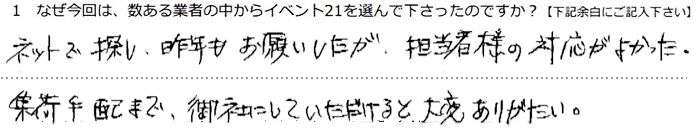 1　なぜ今回は、数ある業者の中からイベント21を選んで下さったのですか？【下記余白にご記入下さい】
ネットで探し、昨年もお願いしたが、担当者様の対応がよかった。
集荷手配まで、御社にしていただけると大変ありがたい。